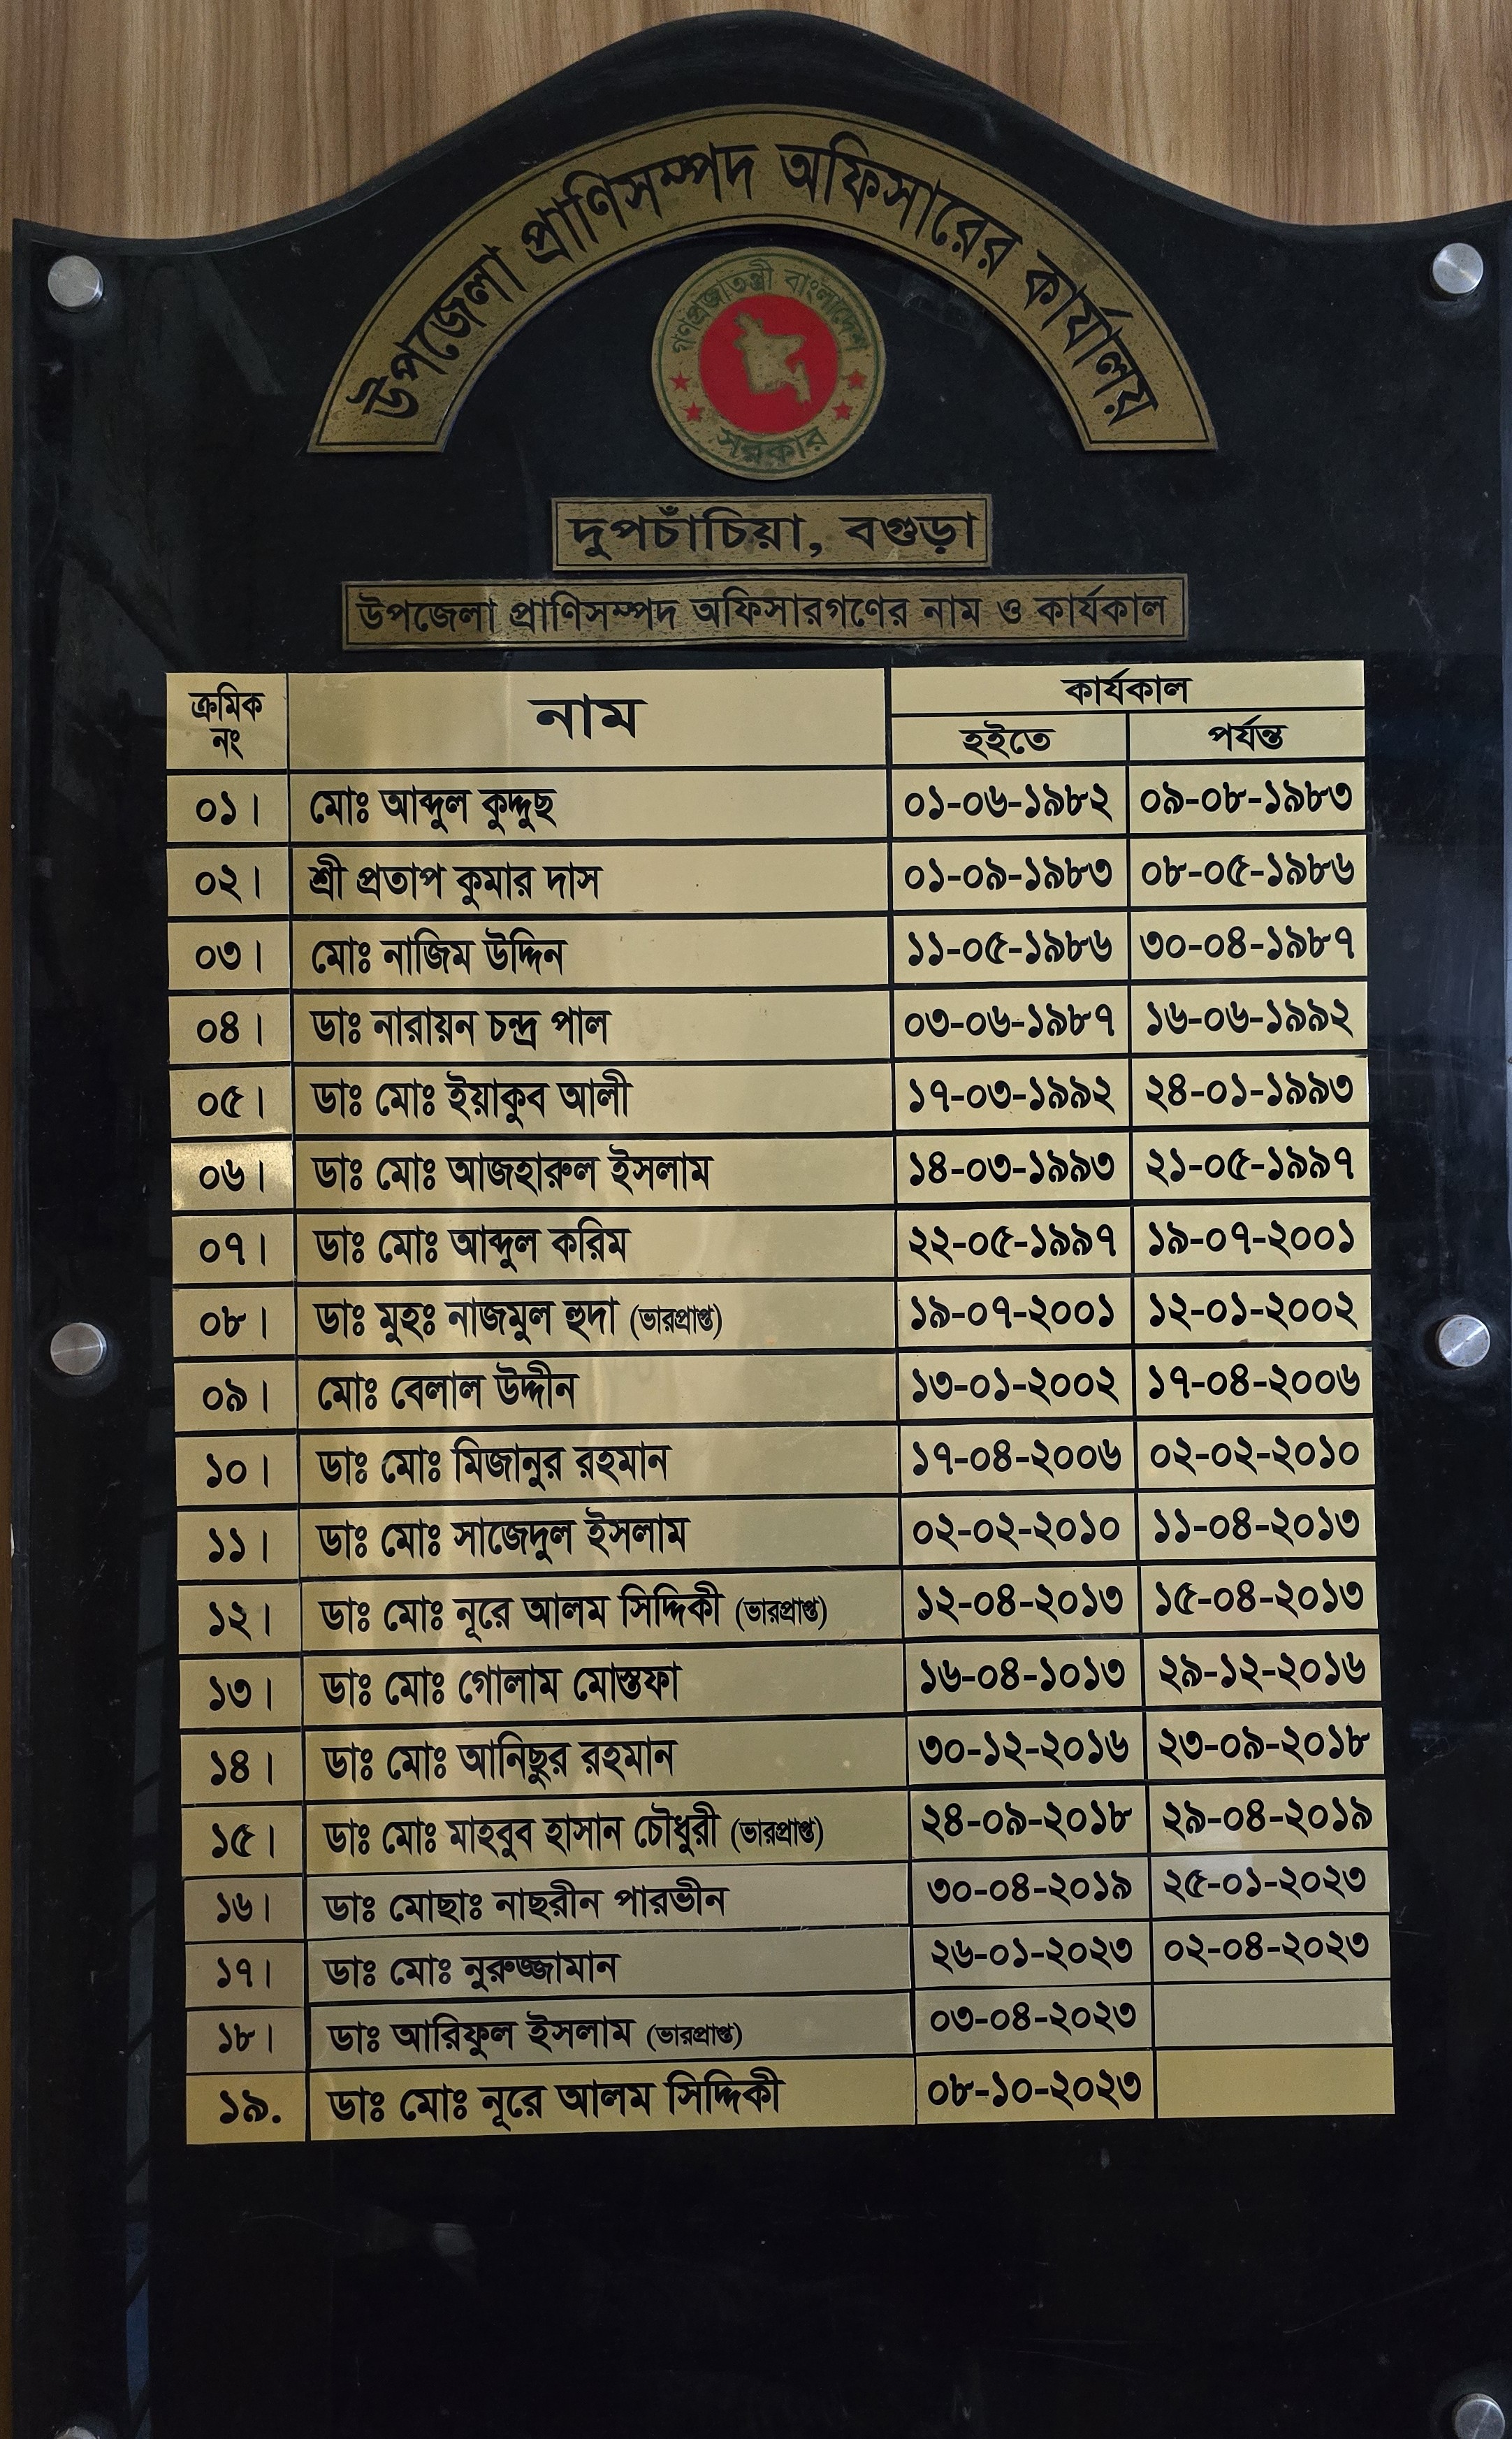 উপজেলা প্রাণিসম্পদ অফিসারের কার্যালয়
গণপ্রজাতন্ত্রী বাংলাদেশ
সরকার
দুপচাঁচিয়া, বগুড়া
উপজেলা প্রাণিসম্পদ অফিসারগণের নাম ও কার্যকাল
ক্রমিক নং নাম কার্যকাল
হইতে পর্যন্ত
০১। মোঃ আব্দুল কুদ্দুছ ০১-০৬-১৯৮২ ০৯-০৮-১৯৮৩
০২। শ্রী প্রতাপ কুমার দাস ০১-০৯-১৯৮৩ ০৮-০৫-১৯৮৬
০৩। মোঃ নাজিম উদ্দিন ১১-০৫-১৯৮৬ ৩০-০৪-১৯৮৭
০৪। ডাঃ নারায়ন চন্দ্র পাল ০৩-০৬-১৯৮৭ ১৬-০৬-১৯৯২
০৫। ডাঃ মোঃ ইয়াকুব আলী ১৭-০৩-১৯৯২ ২৪-০১-১৯৯৩
০৬। ডাঃ মোঃ আজহারুল ইসলাম ১৪-০৩-১৯৯৩ ২১-০৫-১৯৯৭
০৭। ডাঃ মোঃ আব্দুল করিম ২২-০৫-১৯৯৭ ১৯-০৭-২০০১
০৮। ডাঃ মুহঃ নাজমুল হুদা (ভারপ্রাপ্ত) ১৯-০৭-২০০১ ১২-০১-২০০২
০৯। মোঃ বেলাল উদ্দীন ১৩-০১-২০০২ ১৭-০৪-২০০৬
১০। ডাঃ মোঃ মিজানুর রহমান ১৭-০৪-২০০৬ ০২-০২-২০১০
১১। ডাঃ মোঃ সাজেদুল ইসলাম ০২-০২-২০১০ ১১-০৪-২০১৩
১২। ডাঃ মোঃ নূরে আলম সিদ্দিকী (ভারপ্রাপ্ত) ১২-০৪-২০১৩ ১৫-০৪-২০১৩
১৩। ডাঃ মোঃ গোলাম মোস্তফা ১৬-০৪-১০১৩ ২৯-১২-২০১৬
১৪। ডাঃ মোঃ আনিছুর রহমান ৩০-১২-২০১৬ ২৩-০৯-২০১৮
১৫। ডাঃ মোঃ মাহবুব হাসান চৌধুরী (ভারপ্রাপ্ত) ২৪-০৯-২০১৮ ২৯-০৪-২০১৯
১৬। ডাঃ মোছাঃ নাছরীন পারভীন ৩০-০৪-২০১৯ ২৫-০১-২০২৩
১৭। ডাঃ মোঃ নুরুজ্জামান ২৬-০১-২০২৩ ০২-০৪-২০২৩
১৮। ডাঃ আরিফুল ইসলাম (ভারপ্রাপ্ত) ০৩-০৪-২০২৩
১৯. ডাঃ মোঃ নূরে আলম সিদ্দিকী ০৮-১০-২০২৩